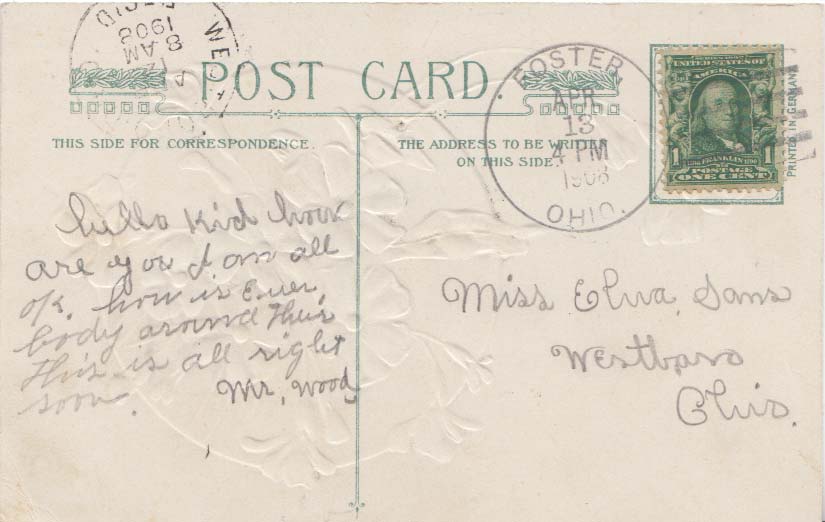 POST CARD.
THIS SIDE FOR CORRESPONDENCE.
THE ADDRESS TO BE WRITTEN
ON THIS SIDE.
8 AM
1908
FOSTER,
APR
13
4 PM
1908
OHIO.
SERIES 1902
UNITED STATES OF
AMERICA
1706 FRANKLIN 1790
1 POSTAGE 1
ONE CENT
PRINTED IN GERMANY
hello kid how
are you I am all
ok. how is Ever
body around Their
This is all right
soon. Mr. Wood
Miss Elva Sans
Westboro
Ohio.